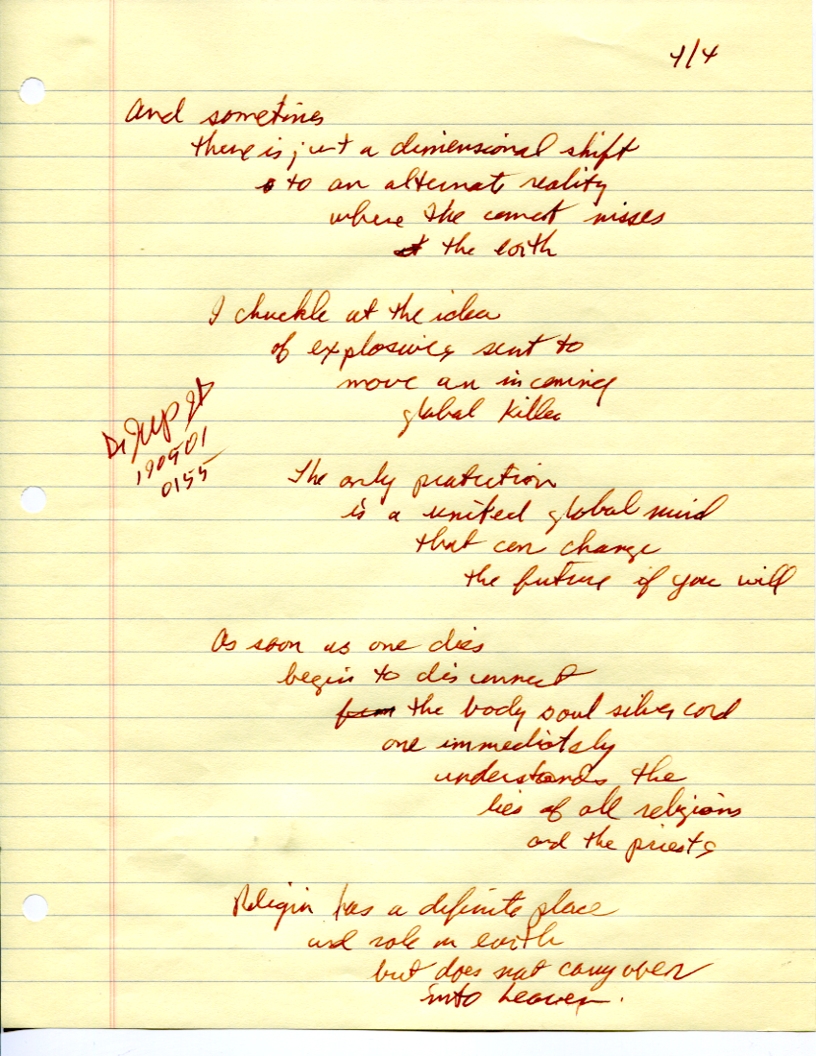 4/4
And sometimes
there is just a dimensional shift
to an alternate reality
where the comet misses
the earth
I chuckle at the idea
of explosives sent to
move an incoming
global killer
190501
0155
The only protection
is a united global mind
that can change
the future if you will
As soon as one dies
begin to disconnect
from the body soul silver cord
one immediately
understands the
lies of all religions
and the priests
Religin has a definite place
and role on earth
but does not carry over
into heaven.